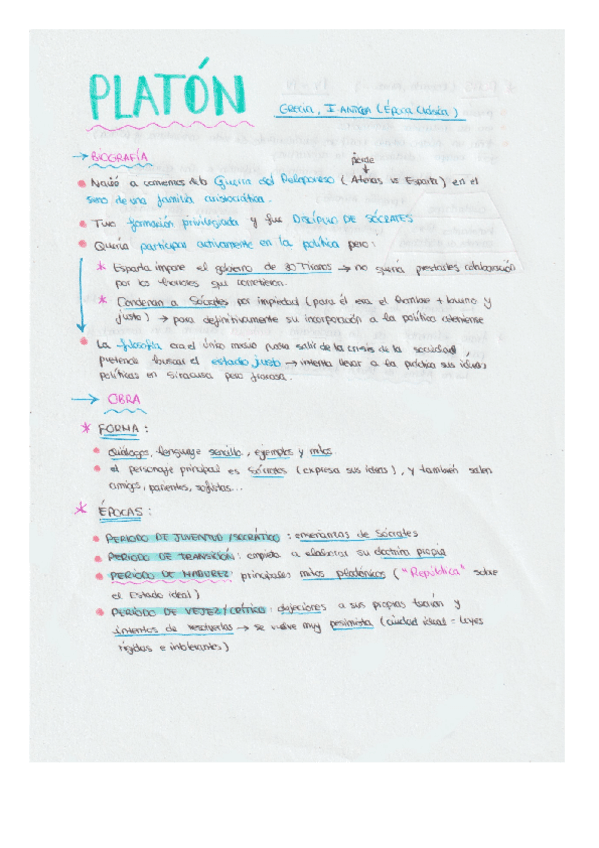 PLATÓN
GRECIA, I ANTIGA (Época Clásica)
→ BIOGRAFÍA
pierde
• Nació a comienzos de la Guerra del Peloponeso (Atenas vs Esparta) en el
seno de una familia aristocrática.
• Tuvo formación privilegiada y fue DISCÍPULO DE SÓCRATES
• Quería participar activamente en la política pero:
* Esparta impone el gobierno de 30 Tiranos → no quería prestarles colaboración
por los horrores que cometieron.
* Condenan a Sócrates por impiedad (para él era el hombre + bueno y
justo) → para definitivamente su incorporación a la política ateniense
• La filosofía era el único medio para salir de las crisis de la sociedad
pretende buscar el estado justo → intenta llevar a la práctica sus ideas
políticas en Siracusa pero fracasa.
→ OBRA
* FORMA:
• diálogos, lenguaje sencillo, ejemplos y mitos.
• el personaje principal es Sócrates (expresa sus ideas), y también salen
amigos, parientes, sofistas...
* ÉPOCAS:
• PERIODO DE JUVENTUD/SOCRÁTICO: enseñanzas de Sócrates
• PERIODO DE TRANSICIÓN: empieza a elaborar su doctrina propia
• PERIODO DE MADUREZ: principales mitos platónicos ("República" sobre
el Estado ideal)
• PERIODO DE VEJEZ/CRÍTICO: objeciones a sus propias teorías y
intentos de resolverlas → se vuelve muy pesimista (ciudad ideal = Leyes
rígidas e intolerantes)